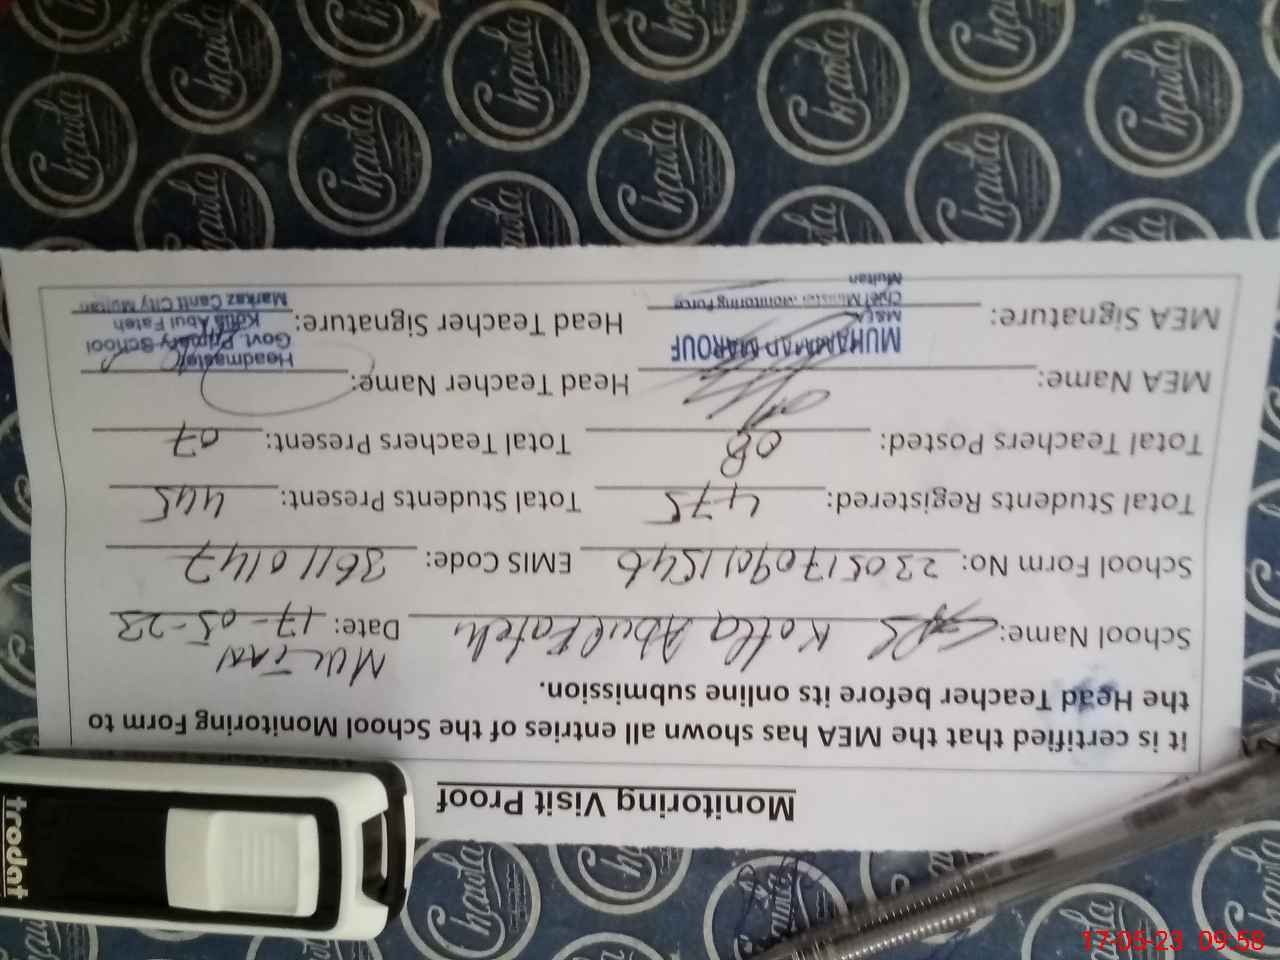 Monitoring Visit Proof
it is certified that the MEA has shown all entries of the School Monitoring Form to
the Head Teacher before its online submission.
MULTAN
School Name: GPS Kotla Abul Fateh Date: 17-05-23
School Form No: 23051709011546 EMIS Code: 36110147
Total Students Registered: 475 Total Students Present: 445
Total Teachers Posted: 08 Total Teachers Present: 07
MEA Name: Head Teacher Name:
MUHAMMAD MAROUF
MEA
Chief Minister Monitoring Force
Multan
Headmaster
Govt. Primary School
Kotla Abul Fateh
Markaz Cantt City Multan
MEA Signature: Head Teacher Signature:
trodat
Chawla
17-05-23 09:58